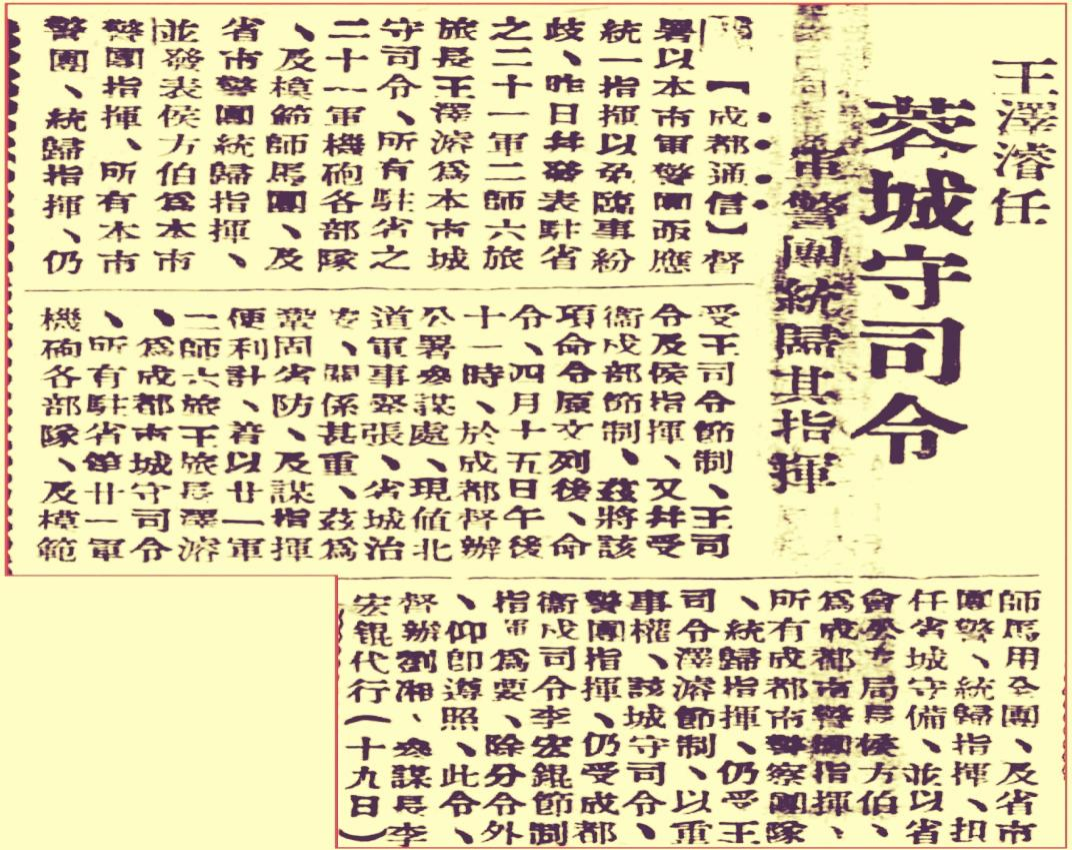 王澤濬任
蓉城守司令
軍警團統歸其指揮
【成都通信】督
署以本市軍警團亟應
統一指揮以免臨事紛
歧、昨日并發表駐省
之二十一軍二師六旅
旅長王澤濬爲本市城
守司令、所有駐省之
二十一軍機砲各部隊
、及模範師馬團、及
省市警團統歸指揮、
並發表侯方伯爲本市
警團指揮、所有本市
警團、統歸指揮、仍
受王司令節制、王司
令及侯指揮、又并受
衞戍部節制、茲將該
項命令原文列後、命
令、四月十五日午後
十一時、於成都督辦
公署參謀處、現値北
道軍事緊張、省城治
安、關係甚重、茲爲
鞏固省防、及謀指揮
便利計、着以廿一軍
二師六旅王旅長澤濬
、爲成都市城守司令
、所有駐省第廿一軍
機砲各部隊、及模範
師馬用全團、及省市
團警、統歸指揮、担
任省城守備、並以省
會公安局長侯方伯、
爲成都市警團指揮、
所有成都市警察團隊
、統歸指揮、仍受王
司令澤濬節制、以重
事權、該城守司令、
警團指揮、仍受成都
衞戍司令李宏錕節制
指揮爲要、除分令外
、仰卽遵照、此令、
督辦劉湘、參謀長李
宏錕代行（十九日）